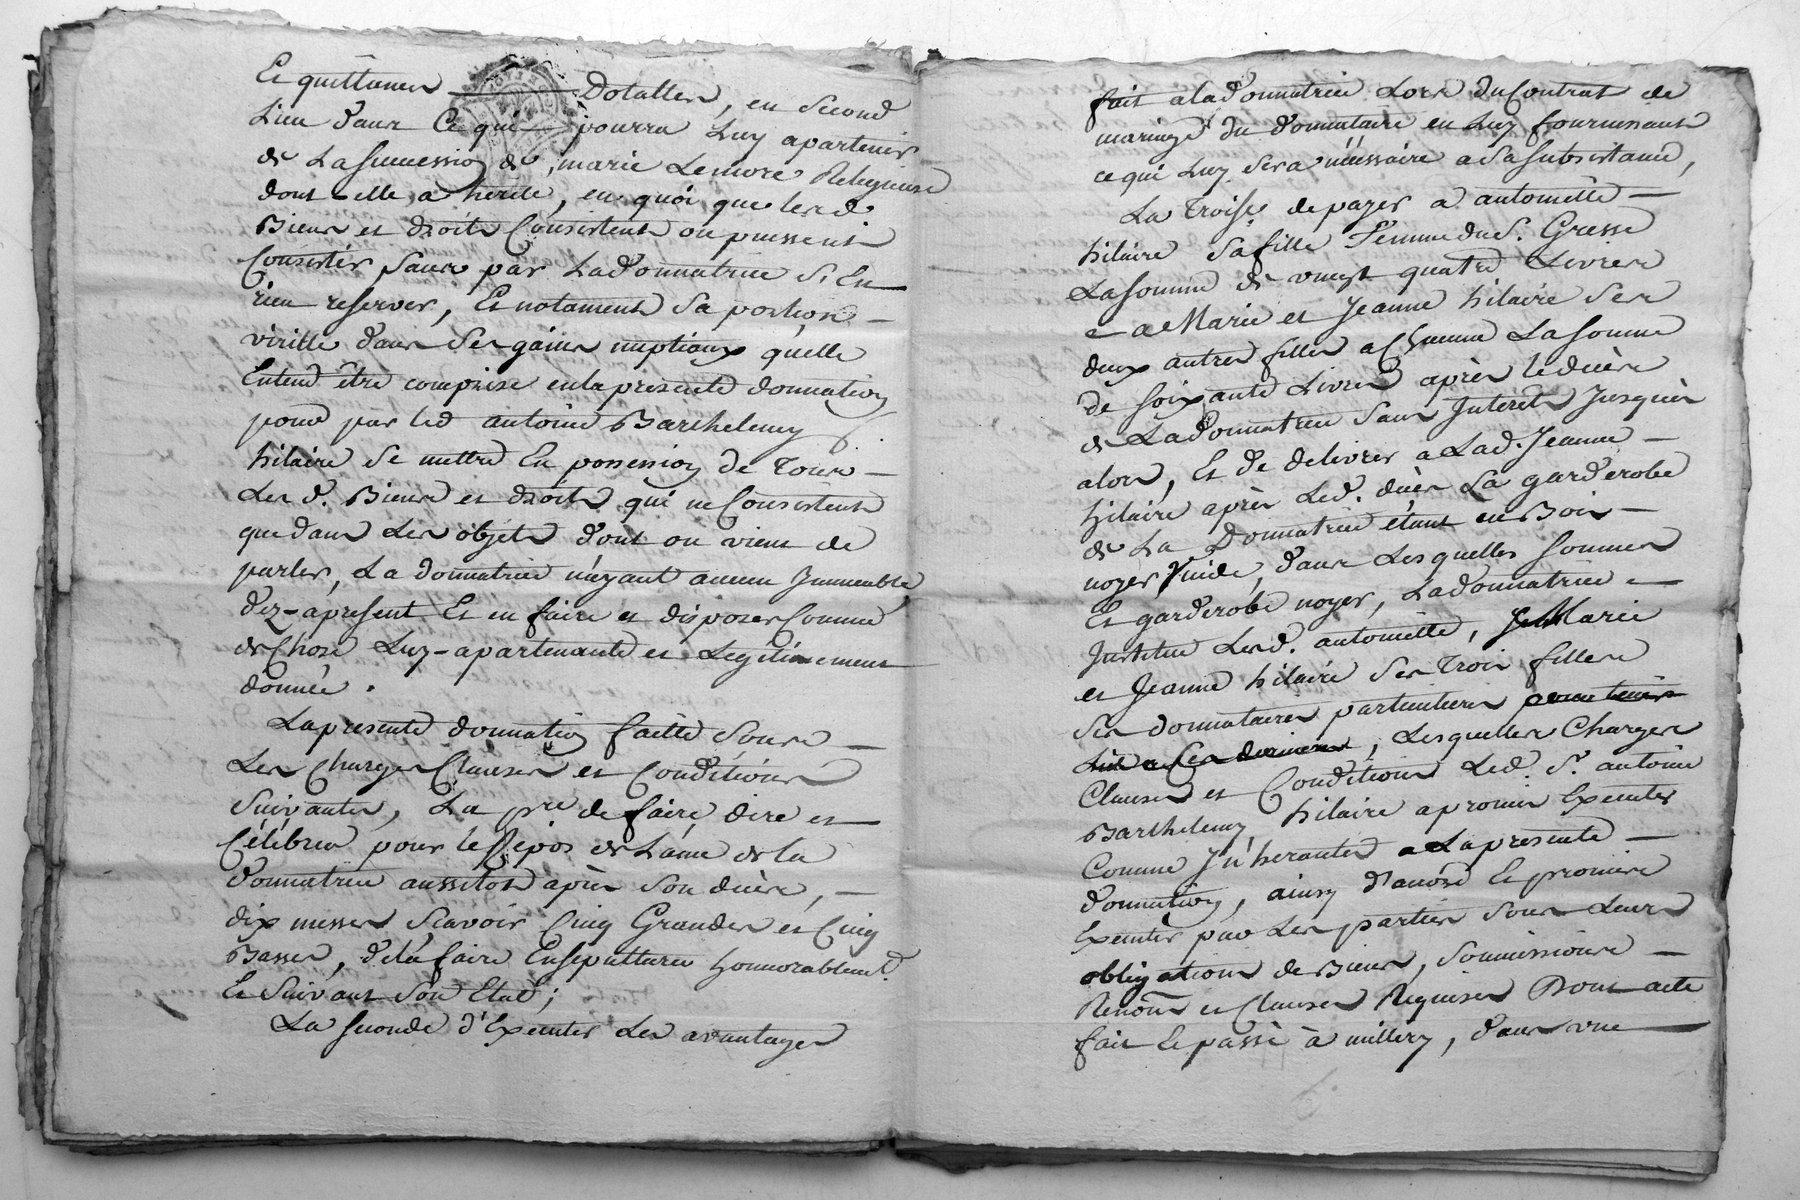 Et quittances Dotalles, en Second
Lieu dans Ce qui pourra Luy apartenir
de La Succession de marie Lemore Religieuse
dont elle a herité, en quoi que lesd
Biens et droits Consistent ou puissent
Consister sans par Ladonnatrice S'En
rien reserver, Et notament Sa portion
virille dans Ses gains nuptiaux qu'elle
Entend être comprise enla presente donnation
pour par led antoine Barthelemy
hilaire Se mettre En possession de Tous
Les d. Biens et droits qui ne Consistent
que dans Les objets dont on vient de
parler, La donnatrice n'ayant aucun Immeuble
dez-apresent Et en faire et disposer Comme
de Chose Luy-apartenante et Legitimement
donnée.
La presente donnation faitte Sous
Les Charges Clauses et Conditions
Suivantes, La pre de faire dire et
Célébrer pour le Repos de L'ame de la
Donnatrice aussitôt après Son décès,
dix messes Scavoir Cinq Grandes et Cinq
Basses, de la faire Ensepulturer honnorablemt
Et Suivant Son Etat;
La Seconde d'Executer Les avantages
fait a la donnatrice Lors du Contrat de
mariage du donnataire en Luy fournissant
ce qui Luy Sera nécessaire a Sa Subsistance,
La Troise de payer a antoinette
hilaire Sa fille Femme du S. Gresse
La Somme de vingt quatre Livres
a Marie et Jeanne hilaire Ses
deux autres filles a Chacune La Somme
de Soixante Livres après le décès
de Ladonnatrice Sans Interêts Jusques
alors, Et de delivrer a Lad. Jeanne
hilaire après Led. décès La garderobe
de La Donnatrice étant en Bois
noyer vuide, dans Lesquelles Sommes
Et garderobe noyer, Ladonnatrice
Institue Lesd. antoinette, Marie
et Jeanne hilaire Ses Trois filles
Ses donnataires particulieres
, Lesquelles Charges
Clauses et Conditions Led. S. antoine
Barthelemy hilaire a promis Executer
Comme Inherantes a La presente
donnation, ainsy d'accord Et promis
Executer par Les parties Sous Leurs
obligations de Biens, Soumissions
Renons et Clauses Requises Dont acte
fait Et passé à millery, dans une